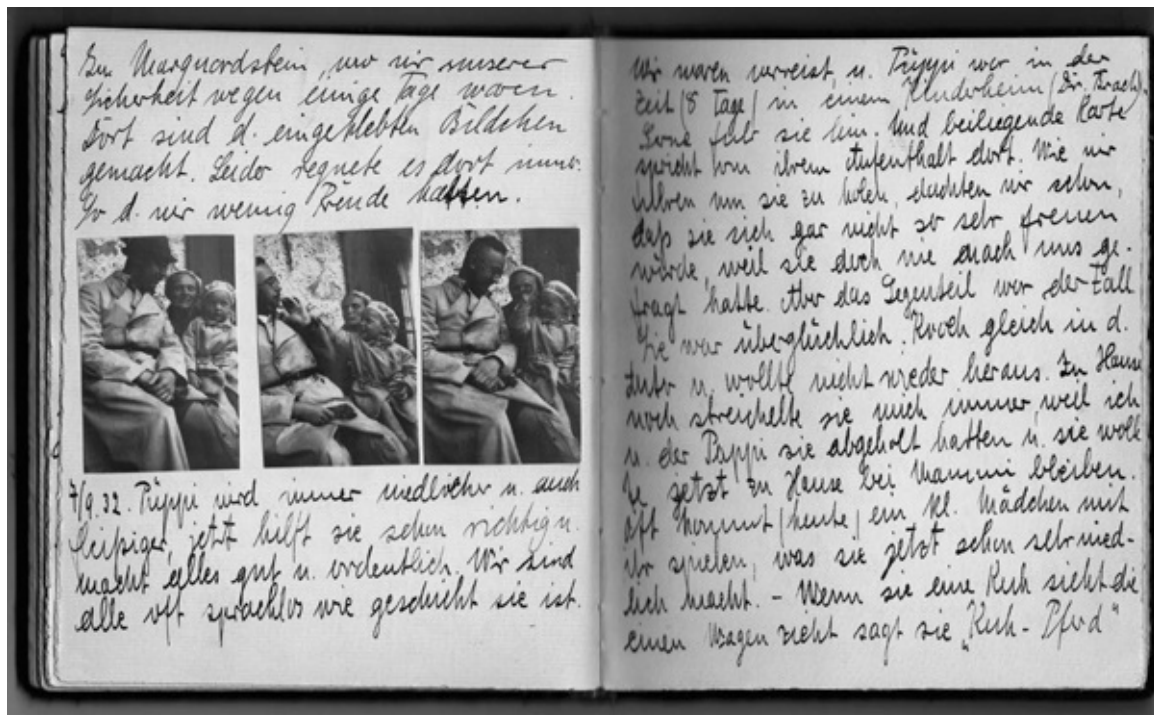 In Marquardstein, wo wir unserer
Sicherheit wegen einige Tage waren.
Dort sind d. eingeklebten Bildchen
gemacht. Leider regnete es dort immer.
So d. wir wenig Freude hatten.
7/9.32. Püppi wird immer niedlicher u. auch
fleißiger, jetzt hilft sie schon richtig u.
macht alles gut u. ordentlich. Wir sind
alle oft sprachlos wie geschickt sie ist.
Wir waren verreist, u. Püppi war in der
Zeit (8 Tage) in einem Kinderheim (Dr.
sie hin. Und beiliegende Karte
spricht von ihrem Aufenthalt dort. Wie wir
fuhren um sie zu holen, dachten wir schon,
daß sie sich gar nicht so sehr freuen
würde, weil sie doch nie nach uns ge-
fragt hatte. Aber das Gegenteil war der Fall
Sie war überglücklich. Kroch gleich in d.
Auto u. wollte nicht wieder heraus. Zu Hause
noch streichelte sie mich immer, weil ich
u. der Pappi sie abgeholt hatten u. sie woll-
te jetzt zu Hause bei Mammi bleiben.
Oft kommt (heute) ein kl. Mädchen mit
ihr spielen, was sie jetzt schon sehr nied-
lich macht. - Wenn sie eine Kuh sieht die
einen Wagen zieht sagt sie „Kuh - Pferd"